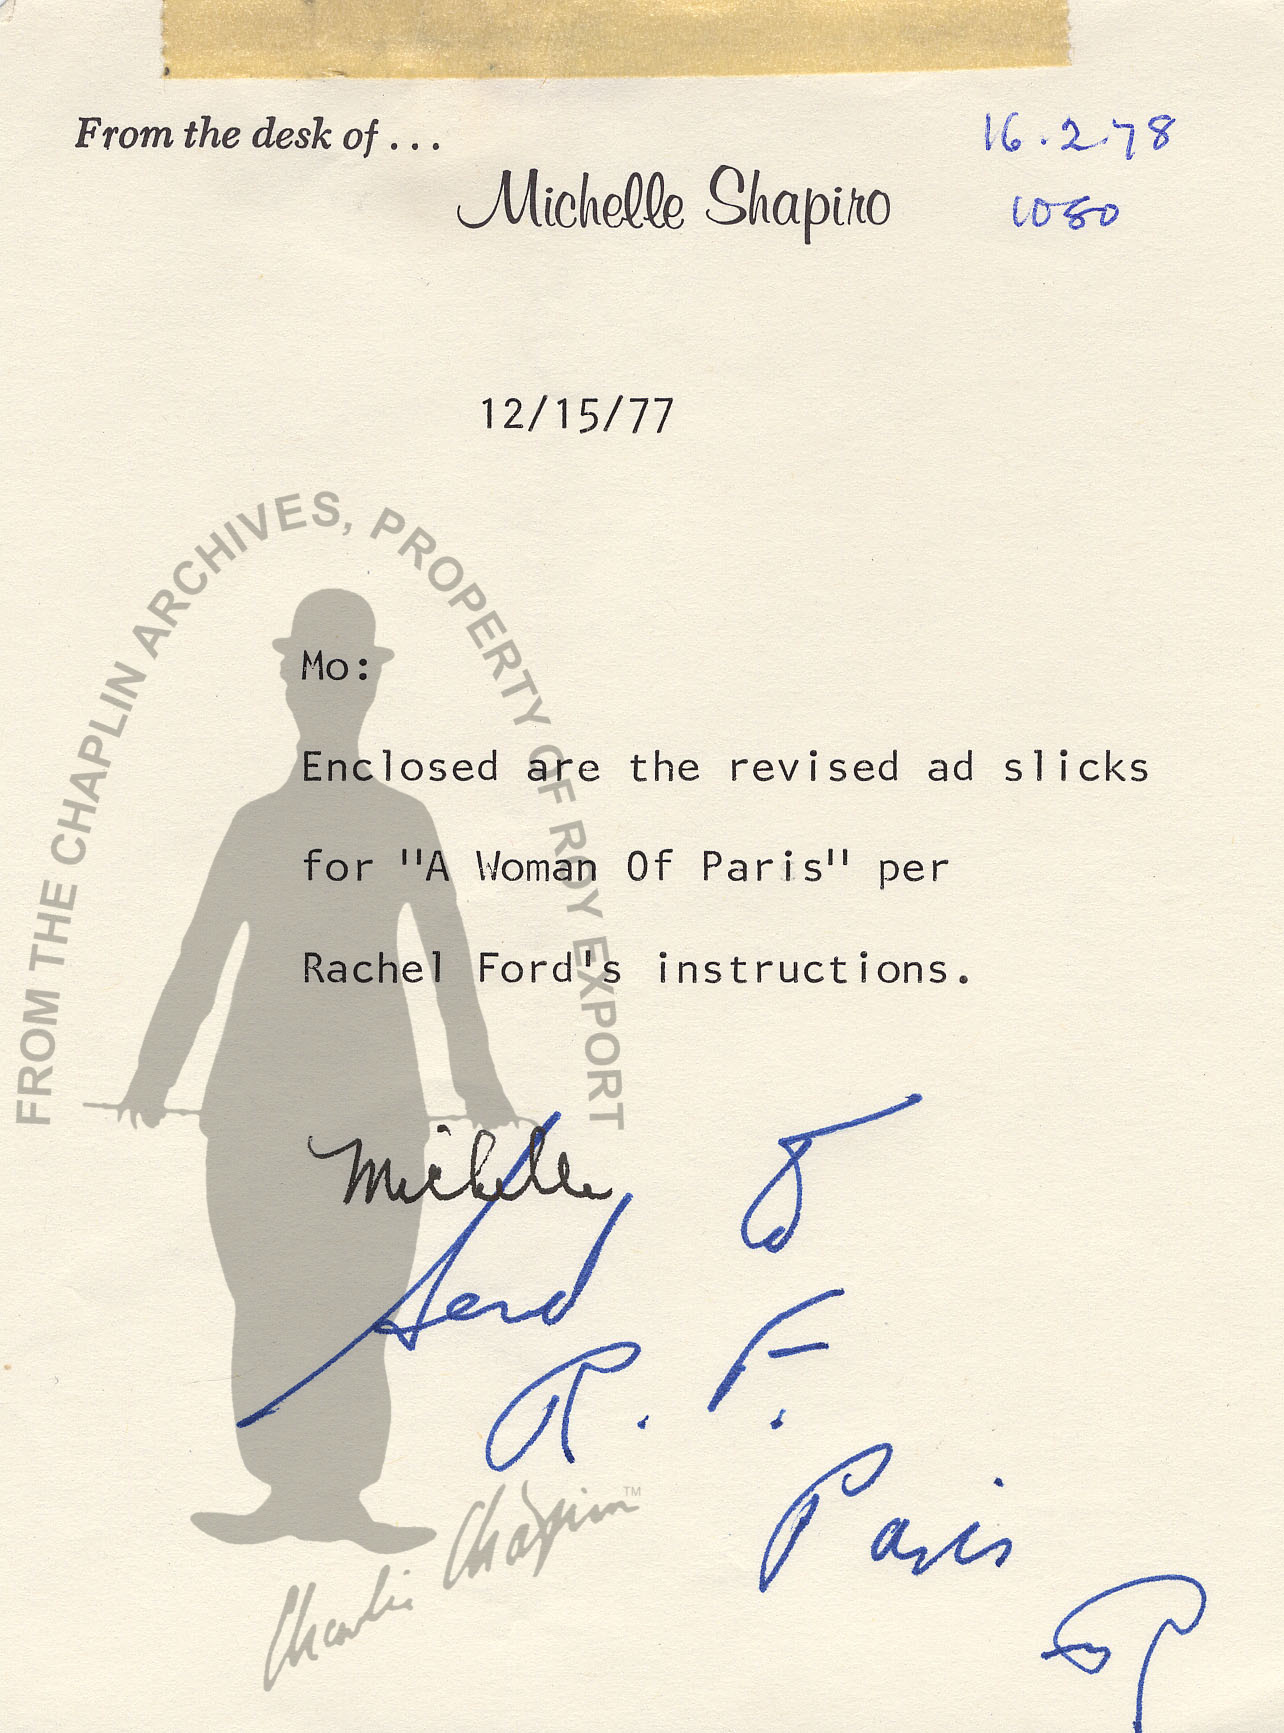 From the desk of . . .
16.2.78
Michelle Shapiro
1050
12/15/77
FROM THE CHAPLIN ARCHIVES, PROPERTY OF ROY EXPORT
Mo:
Enclosed are the revised ad slicks
for "A Woman Of Paris" per
Rachel Ford's instructions.
Michelle
Send to
R. F.
Paris
Charlie Chaplin™